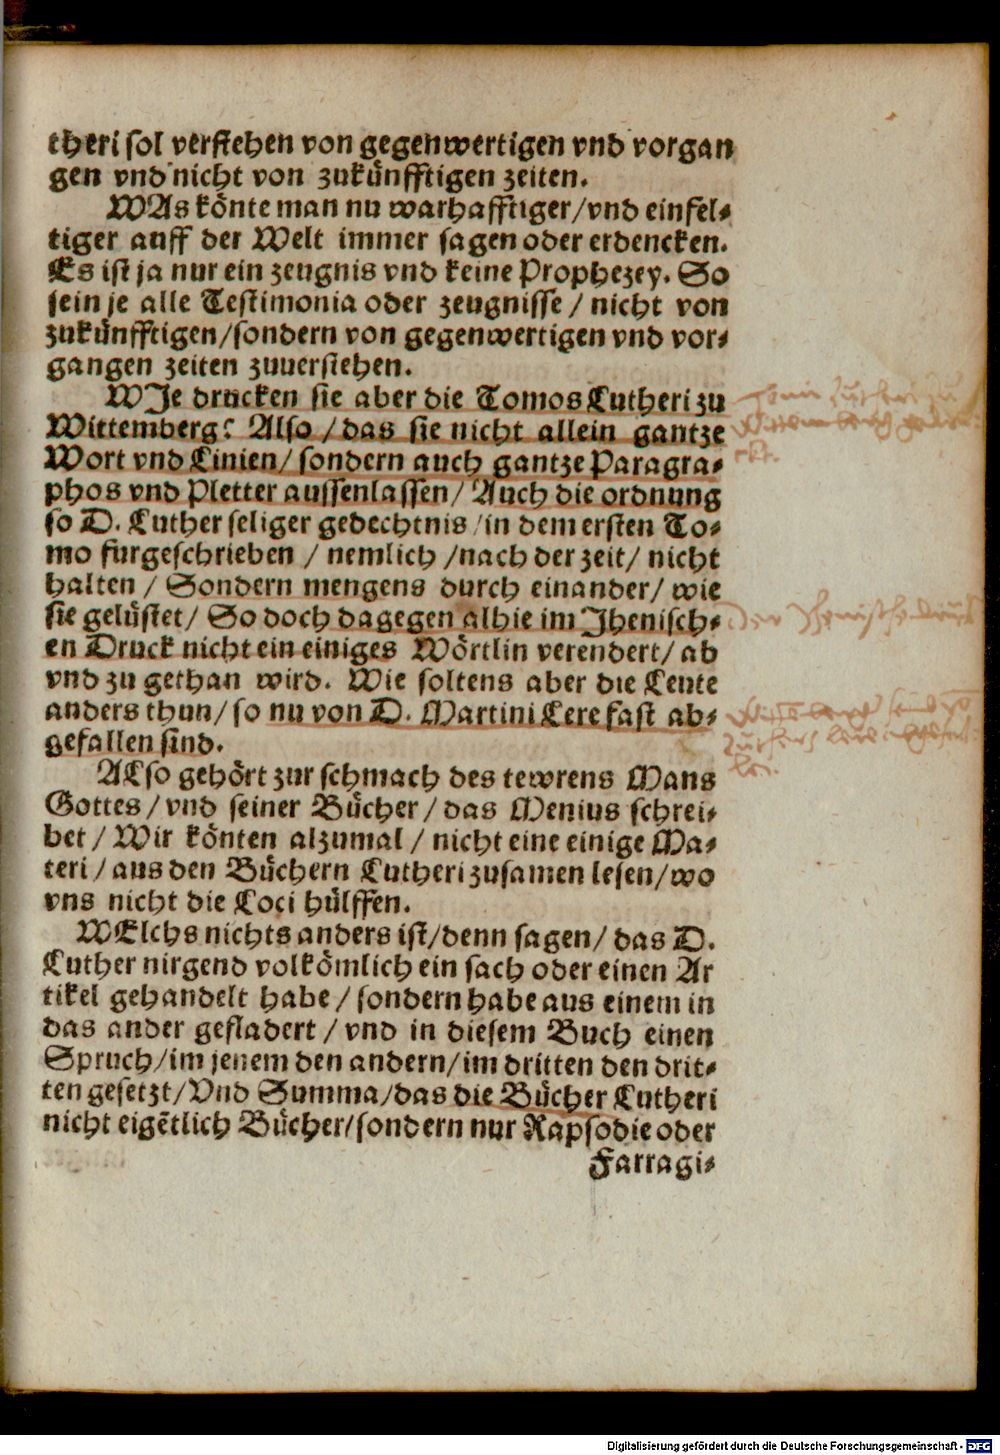 theri sol verstehen von gegenwertigen vnd vorgan
gen vnd nicht von zukünfftigen zeiten.
WAs könte man nu warhafftiger/vnd einfel⸗
tiger auff der Welt immer sagen oder erdencken.
Es ist ja nur ein zeugnis vnd keine Prophezey. So
sein je alle Testimonia oder zeugnisse / nicht von
zukünfftigen/sondern von gegenwertigen vnd vor⸗
gangen zeiten zuuerstehen.
WIe drucken sie aber die Tomos Lutheri zu
Wittemberg? Also / das sie nicht allein gantze
Wort vnd Linien/ sondern auch gantze Paragra⸗
phos vnd Pletter aussenlassen/ Auch die ordnung
so D. Luther seliger gedechtnis /in dem ersten To⸗
mo furgeschrieben / nemlich /nach der zeit/ nicht
halten / Sondern mengens durch einander/ wie
sie gelüstet/ So doch dagegen alhie im Jhenisch⸗
en Druck nicht ein einiges Wörtlin verendert/ ab
vnd zu gethan wird. Wie soltens aber die Leute
anders thun/ so nu von D. Martini Lere fast ab⸗
gefallen sind.
ALso gehört zur schmach des tewrens Mans
Gottes / vnd seiner Bücher / das Menius schrei⸗
bet / Wir könten alzumal / nicht eine einige Ma⸗
teri / aus den Büchern Lutheri zusamen lesen/wo
vns nicht die Loci hülffen.
WElchs nichts anders ist/denn sagen/ das D.
Luther nirgend volkömlich ein sach oder einen Ar
tikel gehandelt habe / sondern habe aus einem in
das ander gefladert / vnd in diesem Buch einen
Spruch/im jenem den andern/im dritten den drit⸗
ten gesetzt/ Vnd Summa/das die Bücher Lutheri
nicht eigẽtlich Bücher/sondern nur Rapsodie oder
Farragi⸗
Tomi Lutheri zu
Wittemberg
Der Jhenische druck
Digitalisierung gefördert durch die Deutsche Forschungsgemeinschaft - DFG